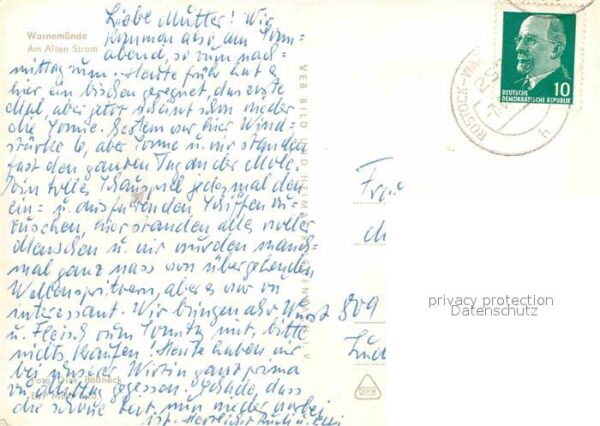 Warnemünde
Am Alten Strom
Liebe Mutter! Wir
kommen also am Sonn-
abend, so zum nach-
mittag rum. Heute früh hat es
hier ein bischen geregnet, das erste
Mal, aber jetzt scheint schon wieder
die Sonne. Gestern war hier Wind-
stärke 6, aber Sonne u. wir standen
fast den ganzen Tag an der Mole.
Ein tolles Schauspiel jedesmal den
ein- u. ausfahrenden Schiffen zu-
zusehen, hier standen alles voller
Menschen u. wir wurden manch-
mal ganz nass von übergehenden
Wellenspritzern, aber es war
interessant. Wir bringen also Wurst
u. Fleisch zum Sonntag mit, bitte
nichts kaufen! Heute haben wir
bei unserer Wirtin ganz prima
zu Mittag gegessen. Schade, dass
die schöne Zeit nun wieder vorbei
ist. Herzlichst
VEB BILD UND HEIMAT REICHENBACH I. V.
DEUTSCHE
DEMOKRATISCHE REPUBLIK
10
ROSTOCK-WA
Frau
809
privacy protection
Datenschutz
Pößneck